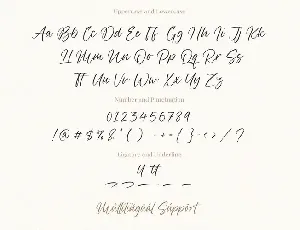 Uppercase and Lowercase
Aa Bb Cc Dd Ee Ff Gg Hh Ii Jj Kk
Ll Mm Nn Oo Pp Qq Rr Ss
Tt Uu Vv Ww Xx Yy Zz
Number and Punctuation
0123456789
!@#$%&*() -+={}:<>/?
Ligature and Underline
tt
Multilingual Support